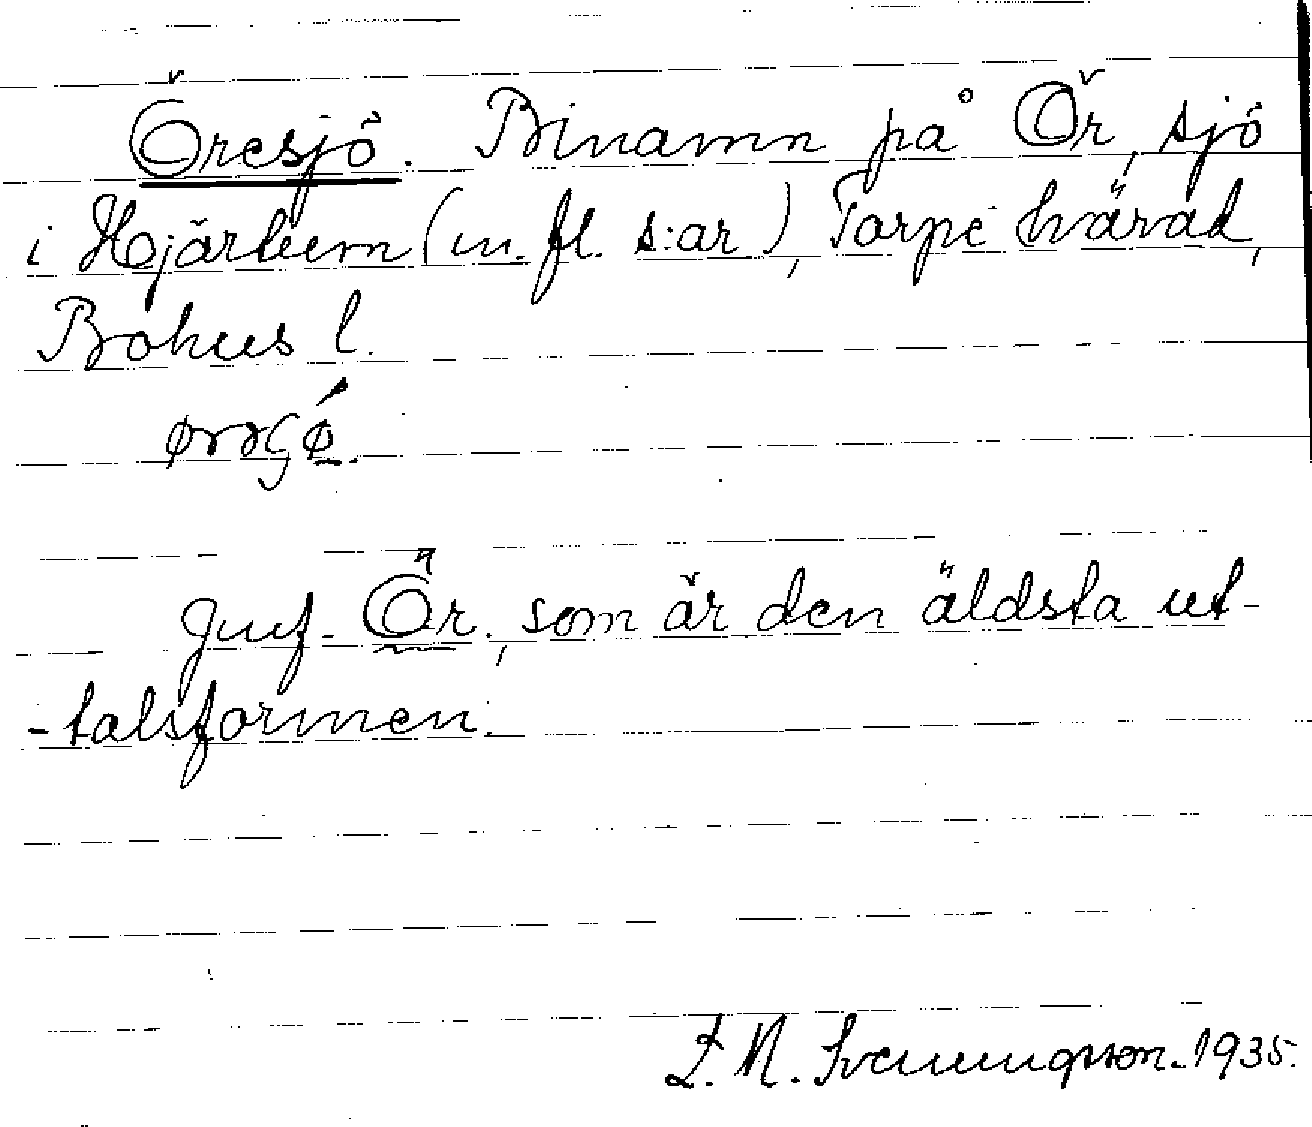 Öresjö. Binamn på Ör, sjö
i Hjärtum (m. fl. s:ar), Torpe härad,
Bohus l.
Jmf. Ör, som är den äldsta ut-
-talsformen.
M. Svenungsson. 1935.